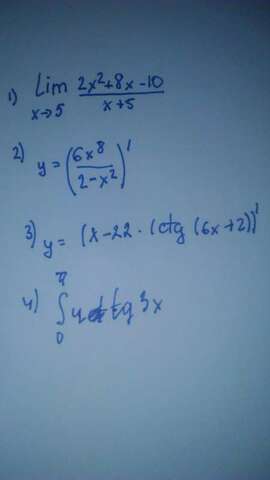 1) Lim x→5 (2x²+8x-10)/(x+5)
2) y = (6x⁸/(2-x²))'
3) y = (x-22 · (ctg (6x+2))'
4) ∫₀ 4 tg 3x